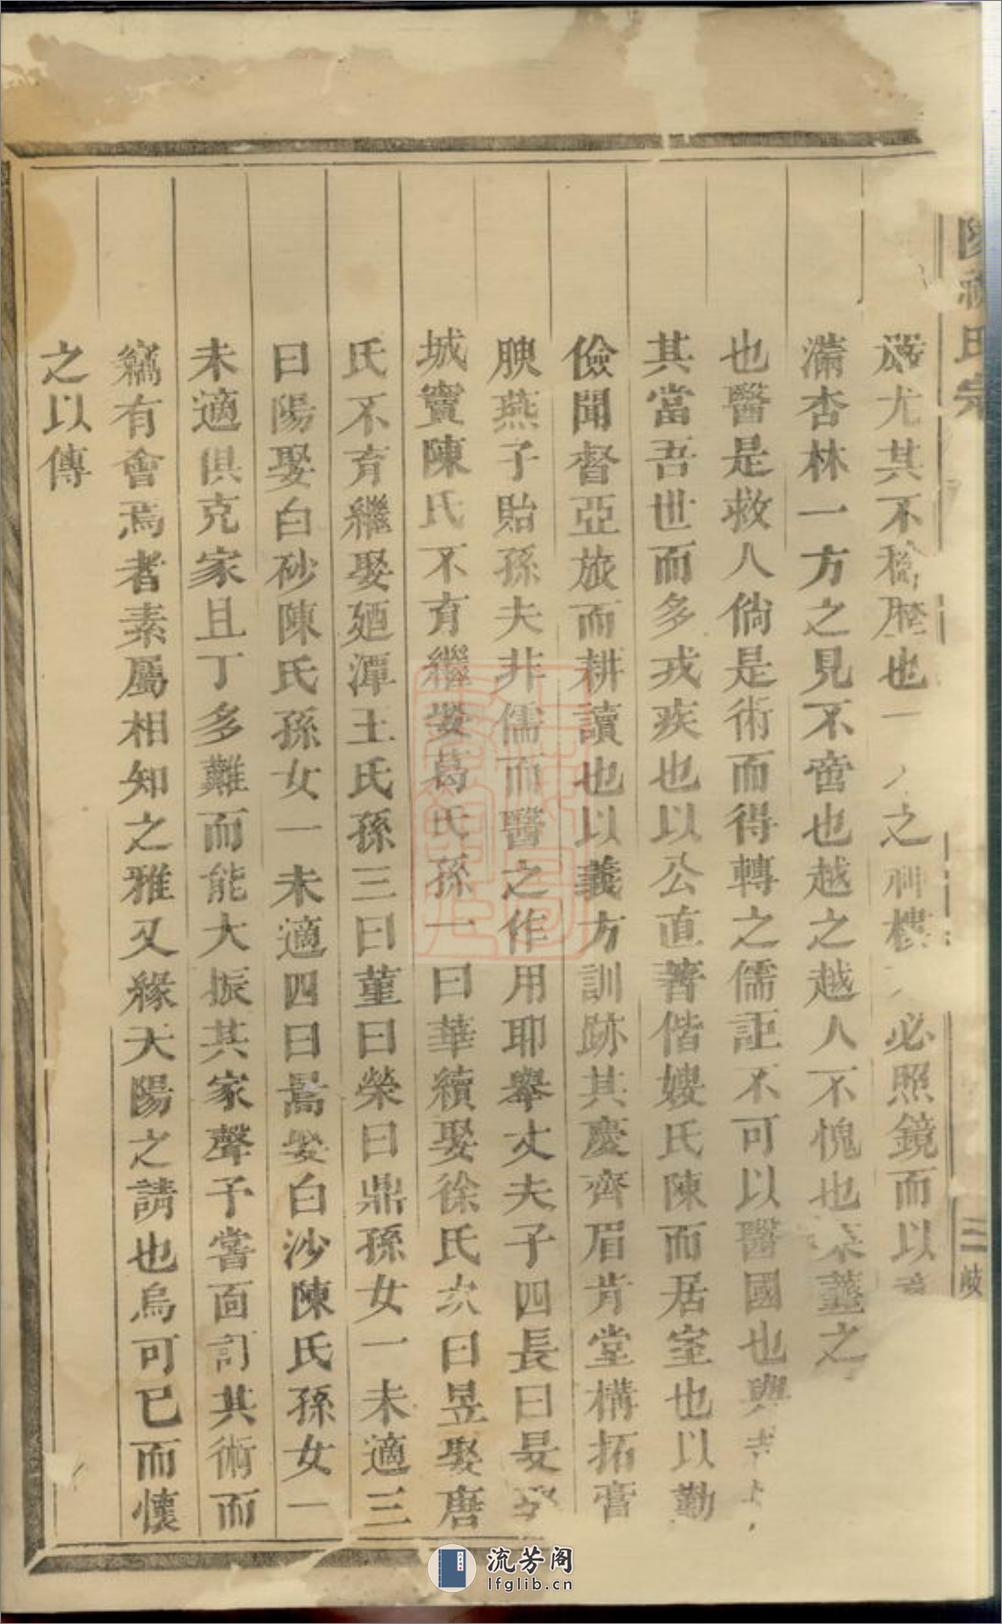 氏宗
三 岐
尤其不 也一 之 樓 必照鏡而以
滿杏林一方之見不啻也越之越人不愧也 之
也醫是救人倘是術而得轉之儒詎不可以醫國也與
其當吾世而多戎疾也以公直著偕嫂氏陳而居室也以勤
儉聞督亞旅而耕讀也以義方訓跡其慶齊眉肯堂構拓膏
腴燕子貽孫夫非儒而醫之作用耶舉丈夫子四長曰旻娶
城竇陳氏不育繼娶葛氏孫一曰華續娶徐氏次曰昱娶唐
氏不育繼娶廼潭王氏孫三曰董曰榮曰鼎孫女一未適三
曰陽娶白砂陳氏孫女一未適四曰暠娶白沙陳氏孫女一
未適俱克家且丁多難而能大振其家聲予嘗面訂其術而
竊有會焉者素屬相知之雅又緣大陽之請也烏可已而懷
之以傳
流芳阁
lfglib.cn